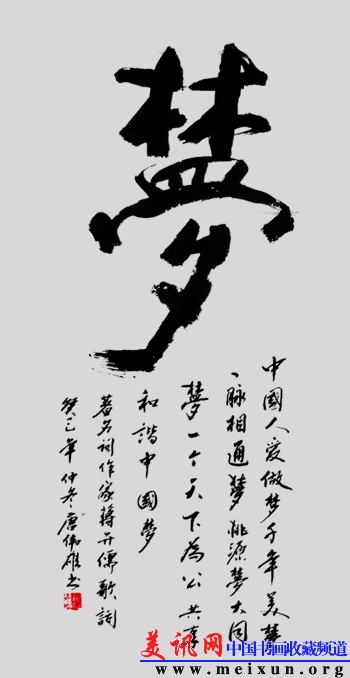 夢
中國人爱做梦千年美夢
一脉相通夢桃源夢大同
夢一个天下為公共享
和諧中國夢
著名词作家蒋开儒歌詞
癸巳年仲冬唐伟雄书
美讯网 中国书画收藏频道
www.meixun.org